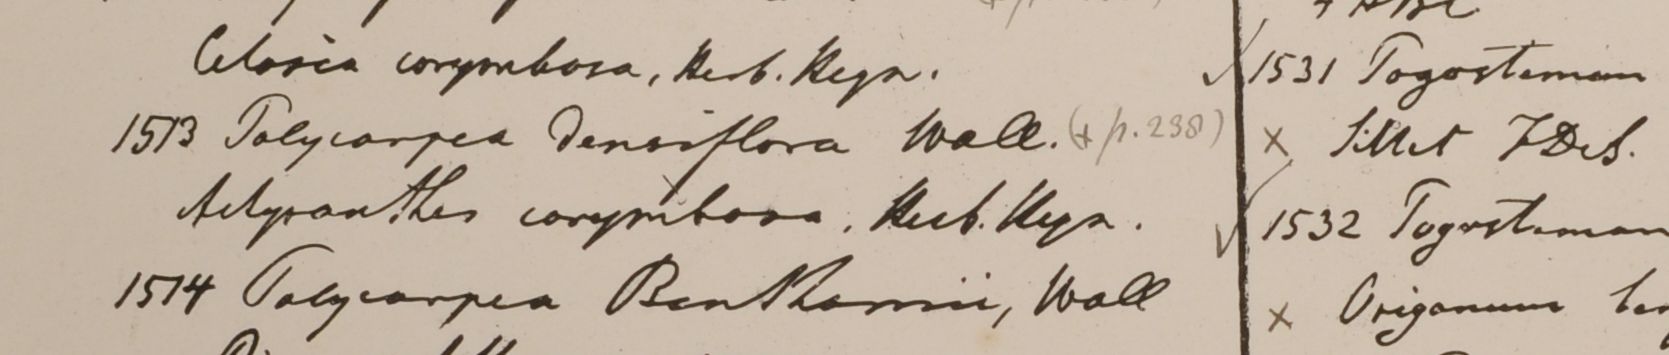 Celosia corymbosa, Herb. Heyn.
1513 Polycarpea densiflora Wall. (+ p. 238)
Achyranthes corymbosa, Herb. Heyn.
1514 Polycarpea Benthamii, Wall
✓ 1531 Pogostemon
× Sillet FDeS.
✓ 1532 Pogostemon
× Origanum